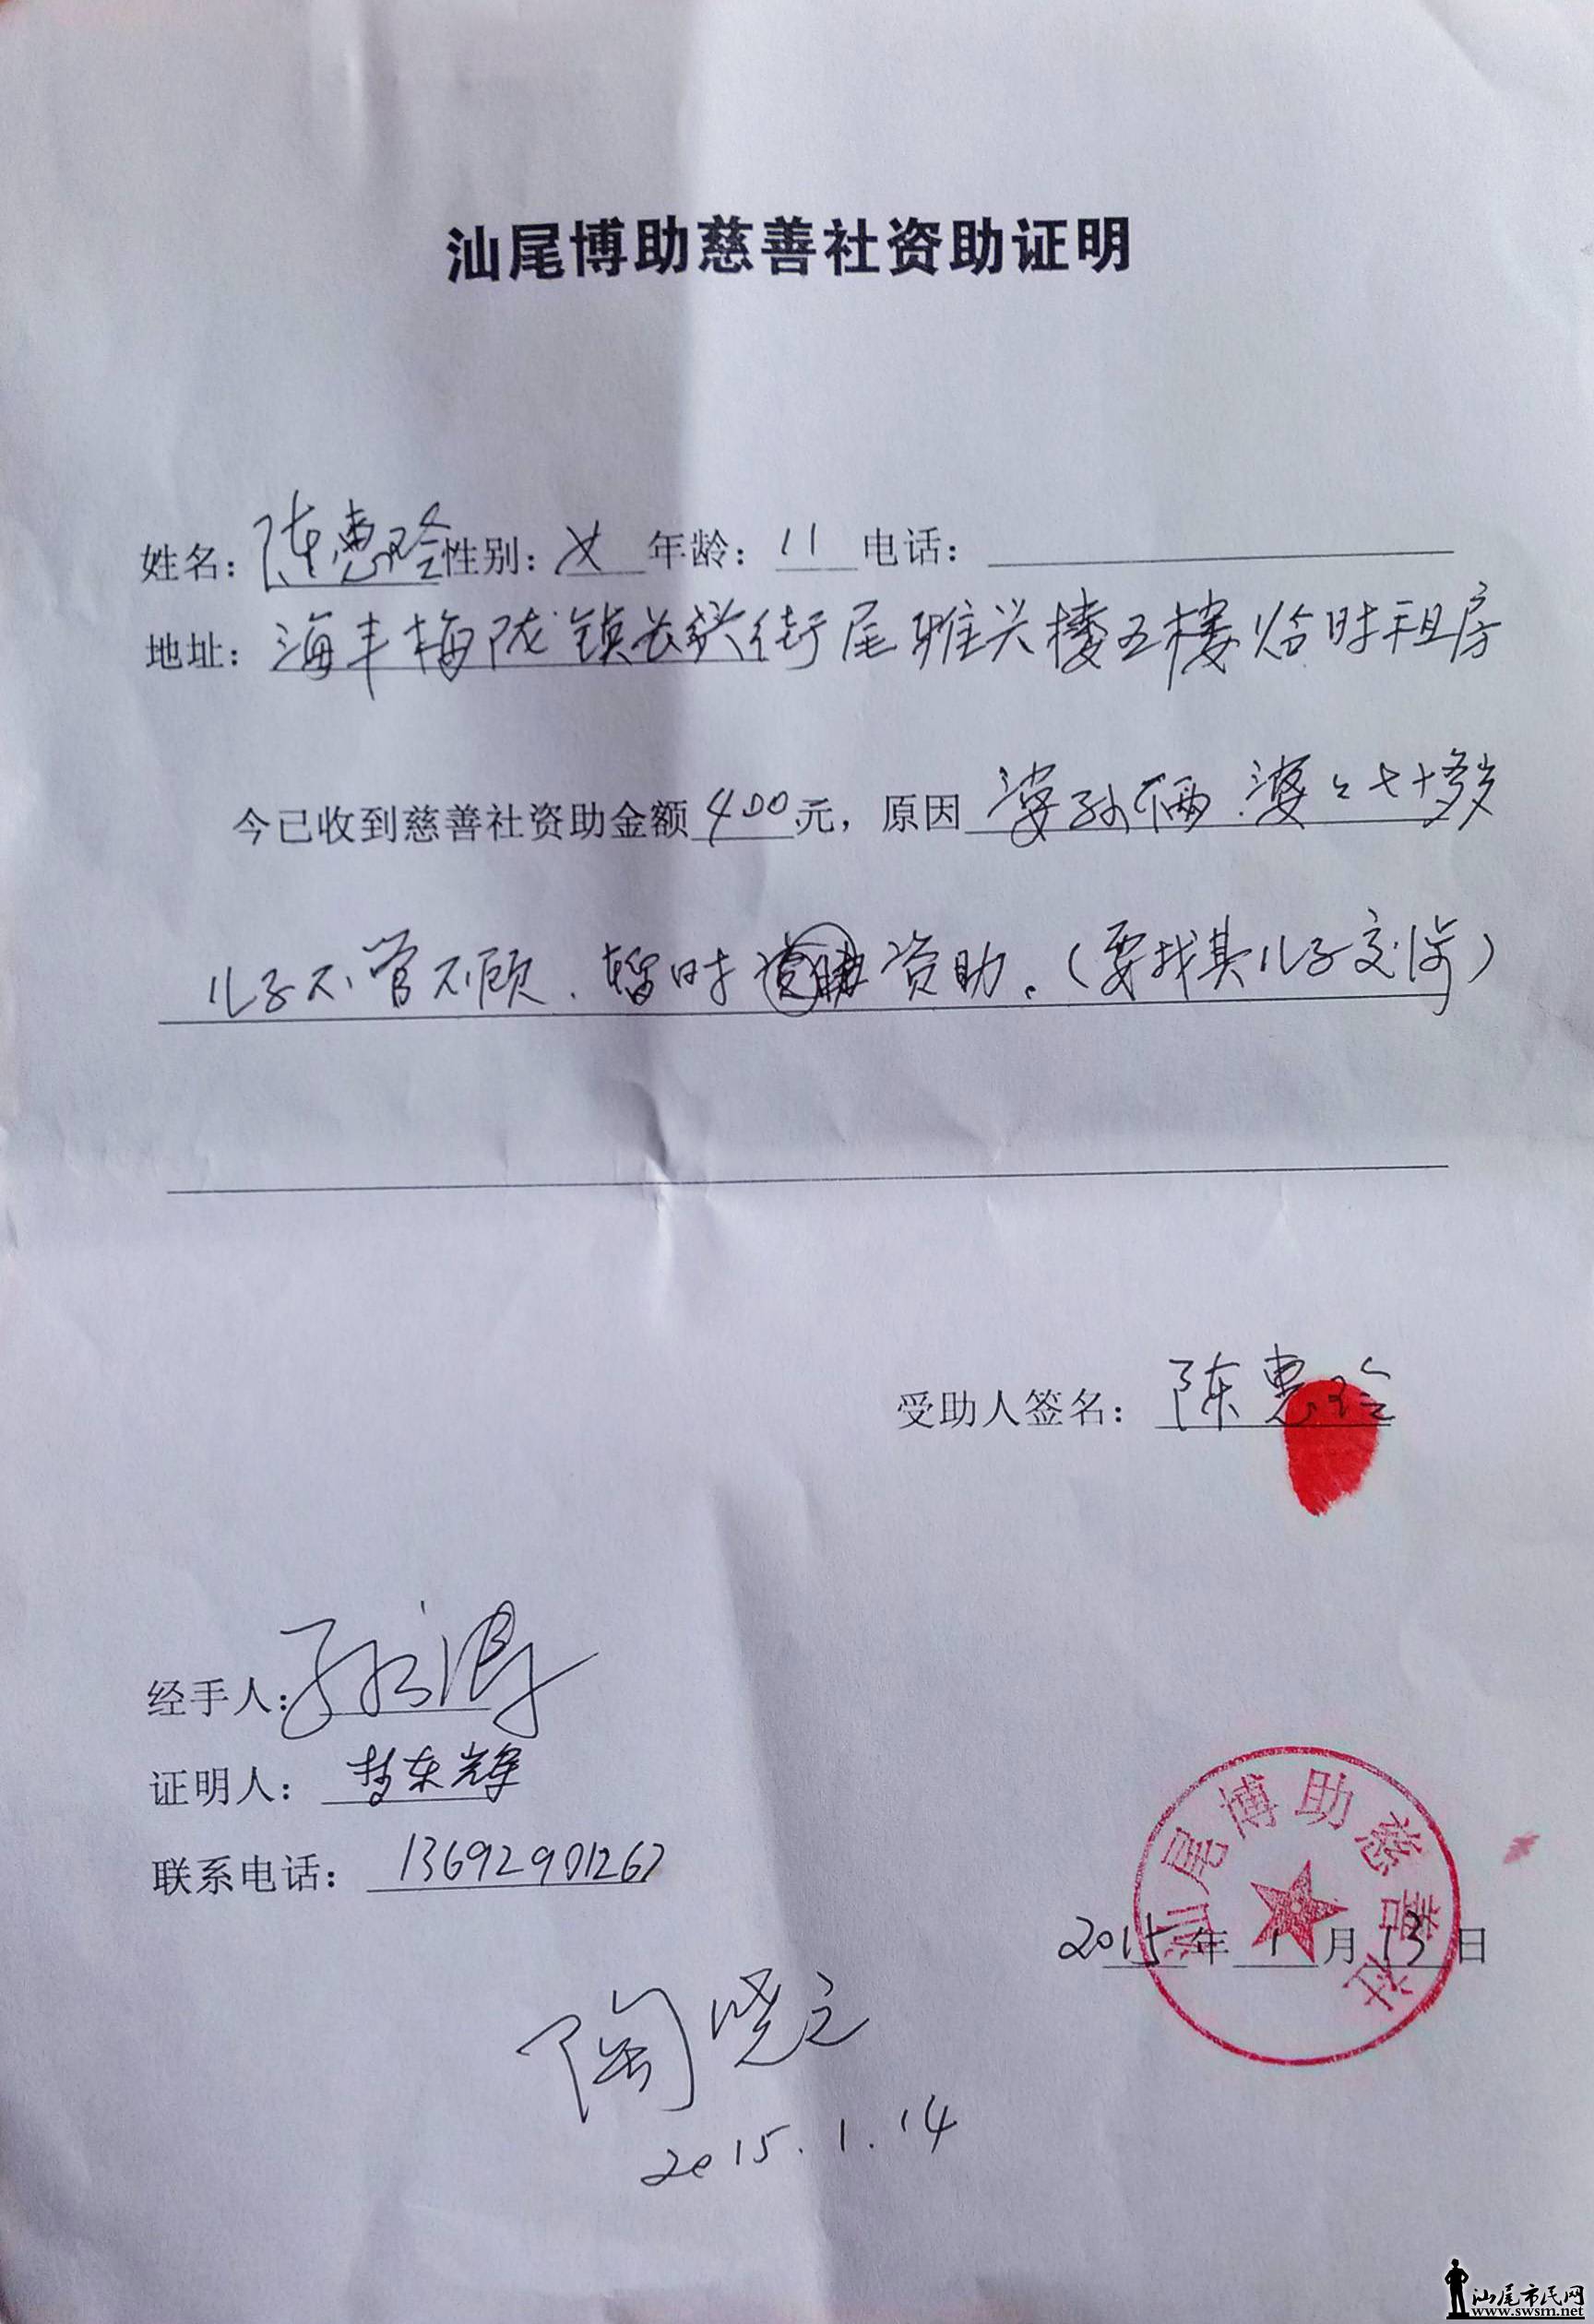 汕尾博助慈善社资助证明
姓名:陈惠玲性别:女 年龄:11 电话:
地址:海丰梅陇镇长兴街尾雅兴楼五楼临时租房
今已收到慈善社资助金额400元,原因 婆孙俩.婆々七十多岁
儿子不管不顾.暂时资助。(要找其儿子交涉)
受助人签名:陈惠玲
经手人:
证明人: 东辉
联系电话:13692901267
汕尾博助慈善社
2015年1月13日
陶晓立
2015.1.14
汕尾市民网
www.swsm.net